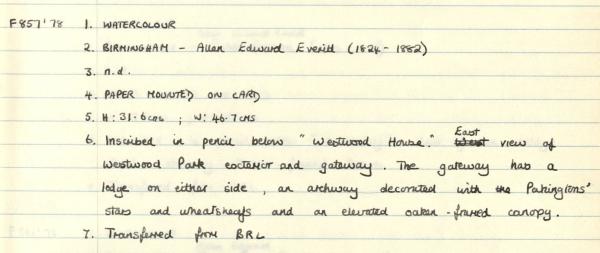 F857'78 1. WATERCOLOUR
2. BIRMINGHAM - Allen Edward Everitt (1824 - 1882)
3. n.d.
4. PAPER MOUNTED ON CARD
5. H: 31.6cms ; W: 46.7cms
6. Inscribed in pencil below "Westwood House." East view of
Westwood Park exterior and gateway. The gateway has a
lodge on either side, an archway decorated with the Pakingtons'
stars and wheatsheafs and an elevated oaken-framed canopy.
7. Transferred from BRL